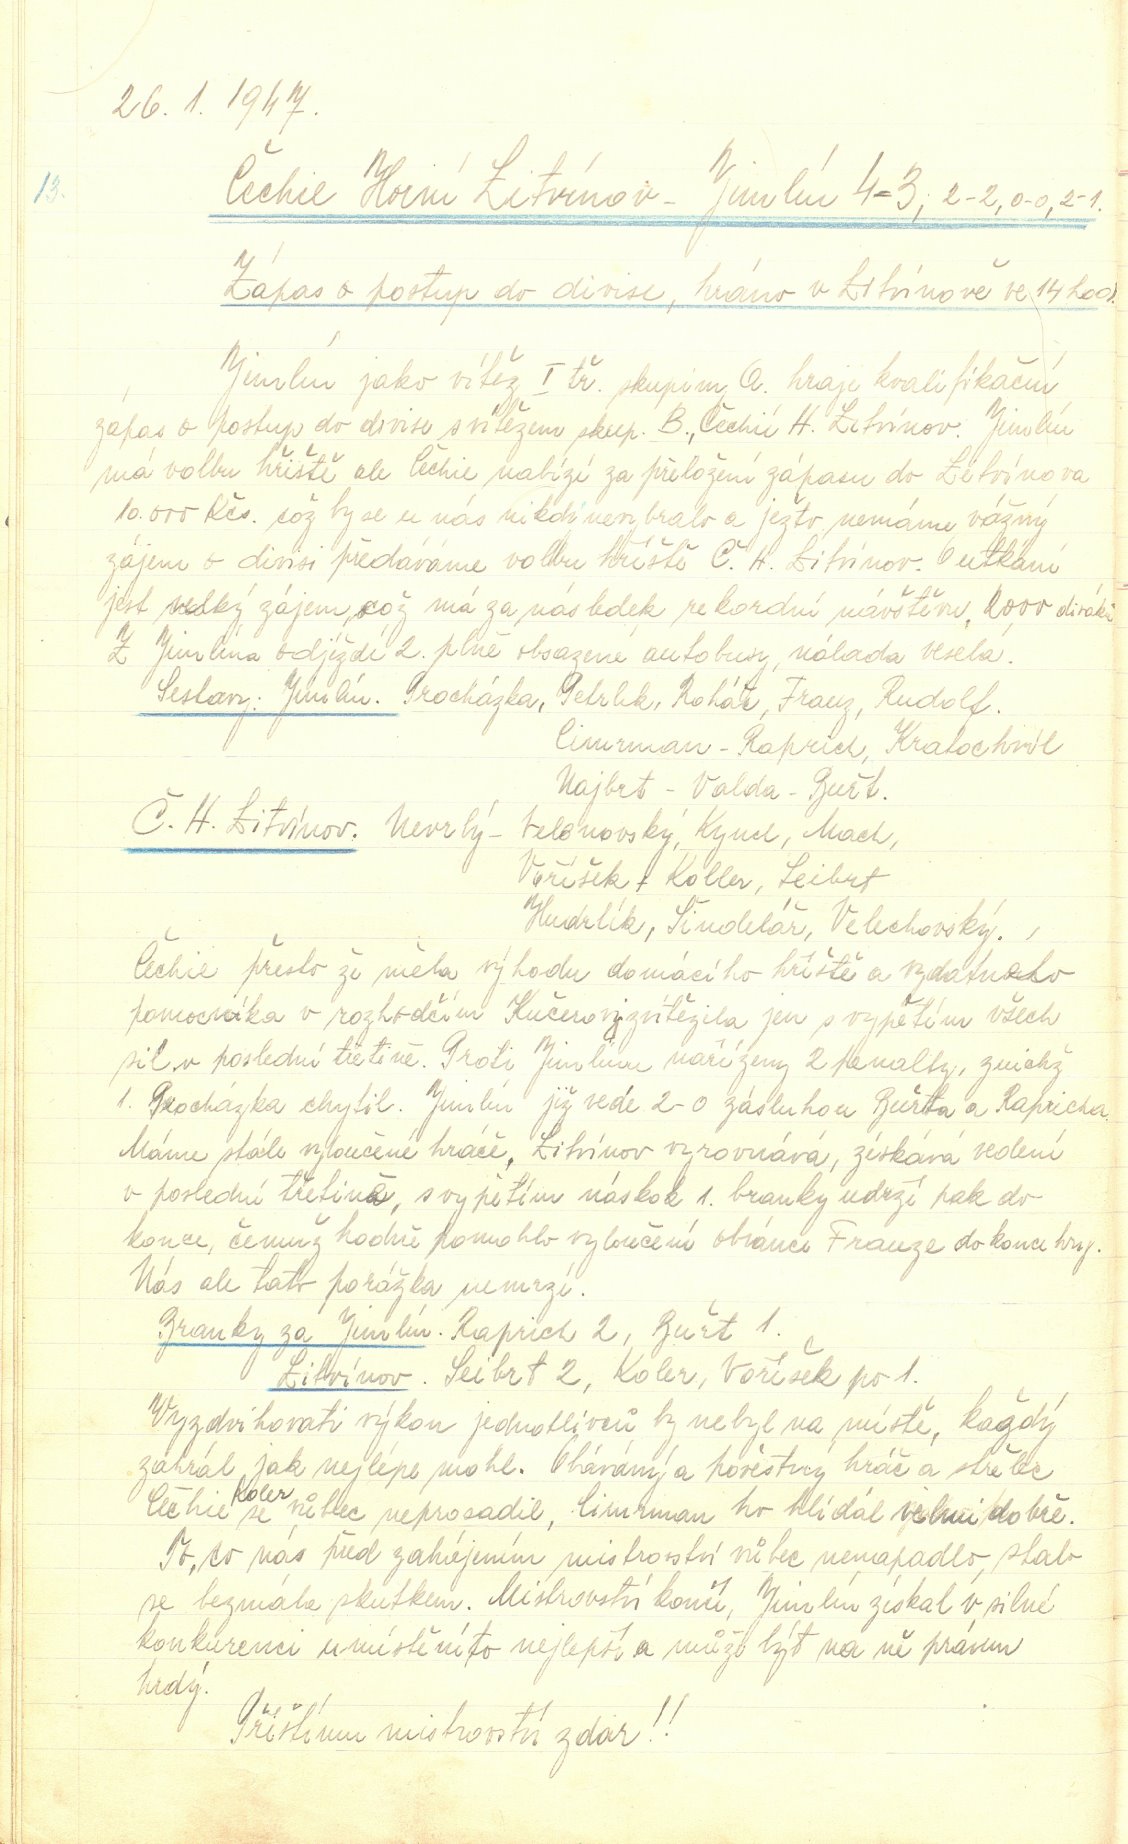 26. 1. 1947.
13.
Čechie Horní Litvínov - Jimlín 4-3; 2-2, 0-0, 2-1.
Zápas o postup do divise, hráno v Litvínově ve 14 hod.
Jimlín jako vítěz I tř. skupiny A. hraje kvalifikační
zápas o postup do divise s vítězem skup. B., Čechií H. Litvínov. Jimlín
má volbu hřiště ale Čechie nabízí za přeložení zápasu do Litvínova
10.000 Kčs. což by se u nás nikdy nevybralo a ježto nemáme vážný
zájem o divisi předáváme volbu hřiště Č. H. Litvínov. O utkání
jest velký zájem, což má za následek rekordní návštěvu, 2000 diváků
Z Jimlína odjíždí 2. plně obsazené autobusy, nálada veselá.
Sestavy: Jimlín. Procházka, Petrlik, Rohác, Franz, Rudolf.
Cimrman - Raprich, Kratochvíl
Najbrt - Valda - Buřt.
Č. H. Litvínov. Nevrlý - Velenovský, Kyncl, Mach,
Voříšek, Koller, Seibrt
Hudrlík, Šindelář, Velechovský.
Čechie přesto že měla výhodu domácího hřiště a vzdatného
pomocníka v rozhodčím Kučerovi zvítězila jen s vypětím všech
sil v poslední třetině. Proti Jimlínu nařízeny 2 penalty, z nichž
1. Procházka chytil. Jimlín již vede 2-0 zásluhou Buřta a Rapricha
Máme stále vyloučené hráče, Litvínov vyrovnává, získává vedení
v poslední třetině, s vypětím náskok 1. branky udrží pak do
konce, čemuž hodně pomohlo vyloučení obránce Franze do konce hry.
Nás ale tato porážka nemrzí.
Branky za Jimlín. Raprich 2, Buřt 1.
Litvínov. Seibrt 2, Koler, Voříšek po 1.
Vyzdvihovati výkon jednotlivců by nebyl na místě, každý
zahrál jak nejlépe mohl. Obávaný a pověstný hráč a střelec
Čechie Koler se vůbec neprosadil, Cimrman ho hlídal velmi dobře.
To, co nás před zahájením mistrovství vůbec nenapadlo, stalo
se bezmála skutkem. Mistrovství končí, Jimlín získal v silné
konkurenci umístění to nejlepší a může být na ně právem
hrdý.
Příštímu mistrovství zdar!!